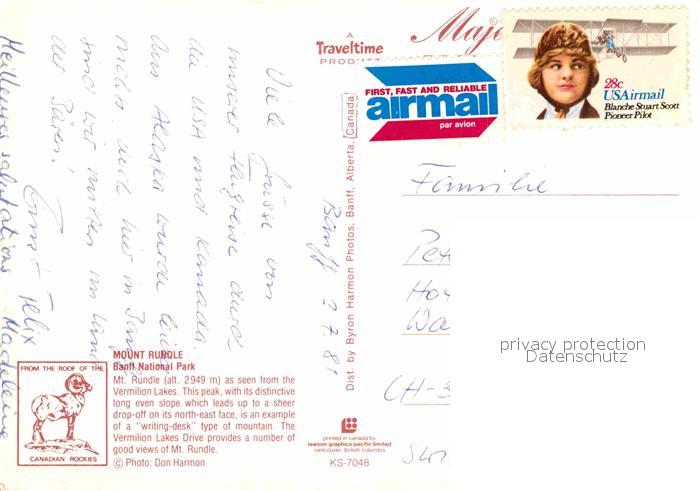 Banff 2.7.81
Viele Grüsse von
unserer Flugreise durch
die USA und Kanada.
Aus Alaska wurde leider
nichts doch hier in Banff
sind wir mitten im Land
der Bären!
Ernst + Felix
Meilleures salutations Madeleine
A
Traveltime
PRODUCT
Maje
©
FIRST, FAST AND RELIABLE
airmail
par avion
28c
USAirmail
Blanche Stuart Scott
Pioneer Pilot
Familie
CH-3
Dist. by Byron Harmon Photos, Banff, Alberta, Canada
privacy protection
Datenschutz
FROM THE ROOF OF THE
CANADIAN ROCKIES
MOUNT RUNDLE
Banff National Park
Mt. Rundle (alt. 2949 m) as seen from the
Vermilion Lakes. This peak, with its distinctive
long even slope which leads up to a sheer
drop-off on its north-east face, is an example
of a "writing-desk" type of mountain. The
Vermilion Lakes Drive provides a number of
good views of Mt. Rundle.
© Photo: Don Harmon
printed in canada by
lawson graphics pacific limited
vancouver, british columbia
KS-7048